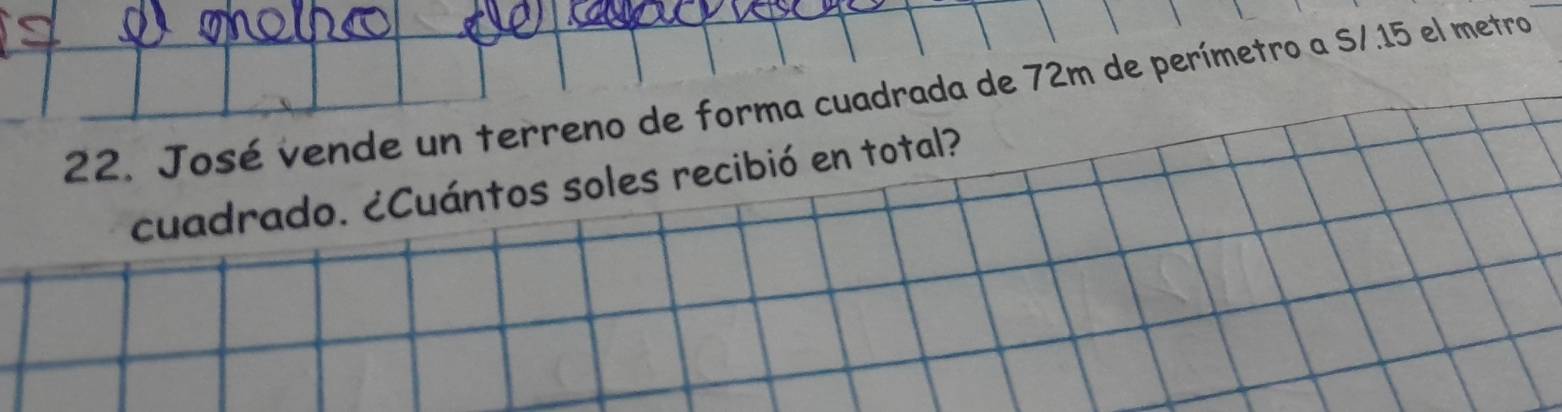 22. José vende un terreno de forma cuadrada de 72m de perímetro a S/.15 el metro
cuadrado. ¿Cuántos soles recibió en total?